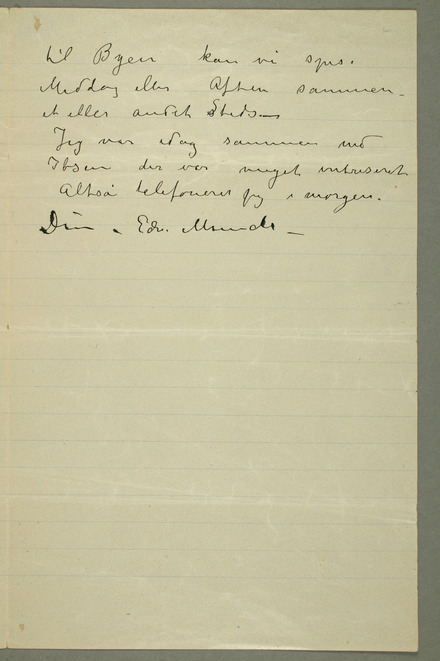 til Byen kan vi spis.
Middag eller Aften sammen –
et eller andet Steds –
Jeg var idag sammen med
Ibsen der var meget interesseret
Altså telefonerer jeg i morgen.
Din . Edv. Munch –